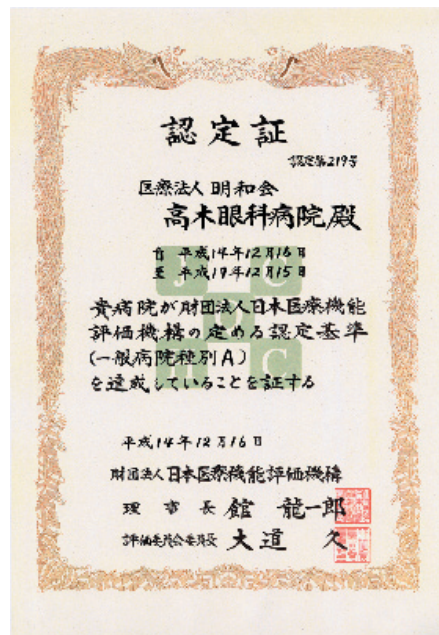 認定証
認定第219号
医療法人 明和会
高木眼科病院 殿
自 平成14年12月16日
至 平成19年12月15日
貴病院が財団法人日本医療機能
評価機構の定める認定基準
(一般病院種別A)
を達成していることを証する
平成14年12月16日
財団法人日本医療機能評価機構
理事長 舘 龍一郎
評価委員会委員長 大道 久